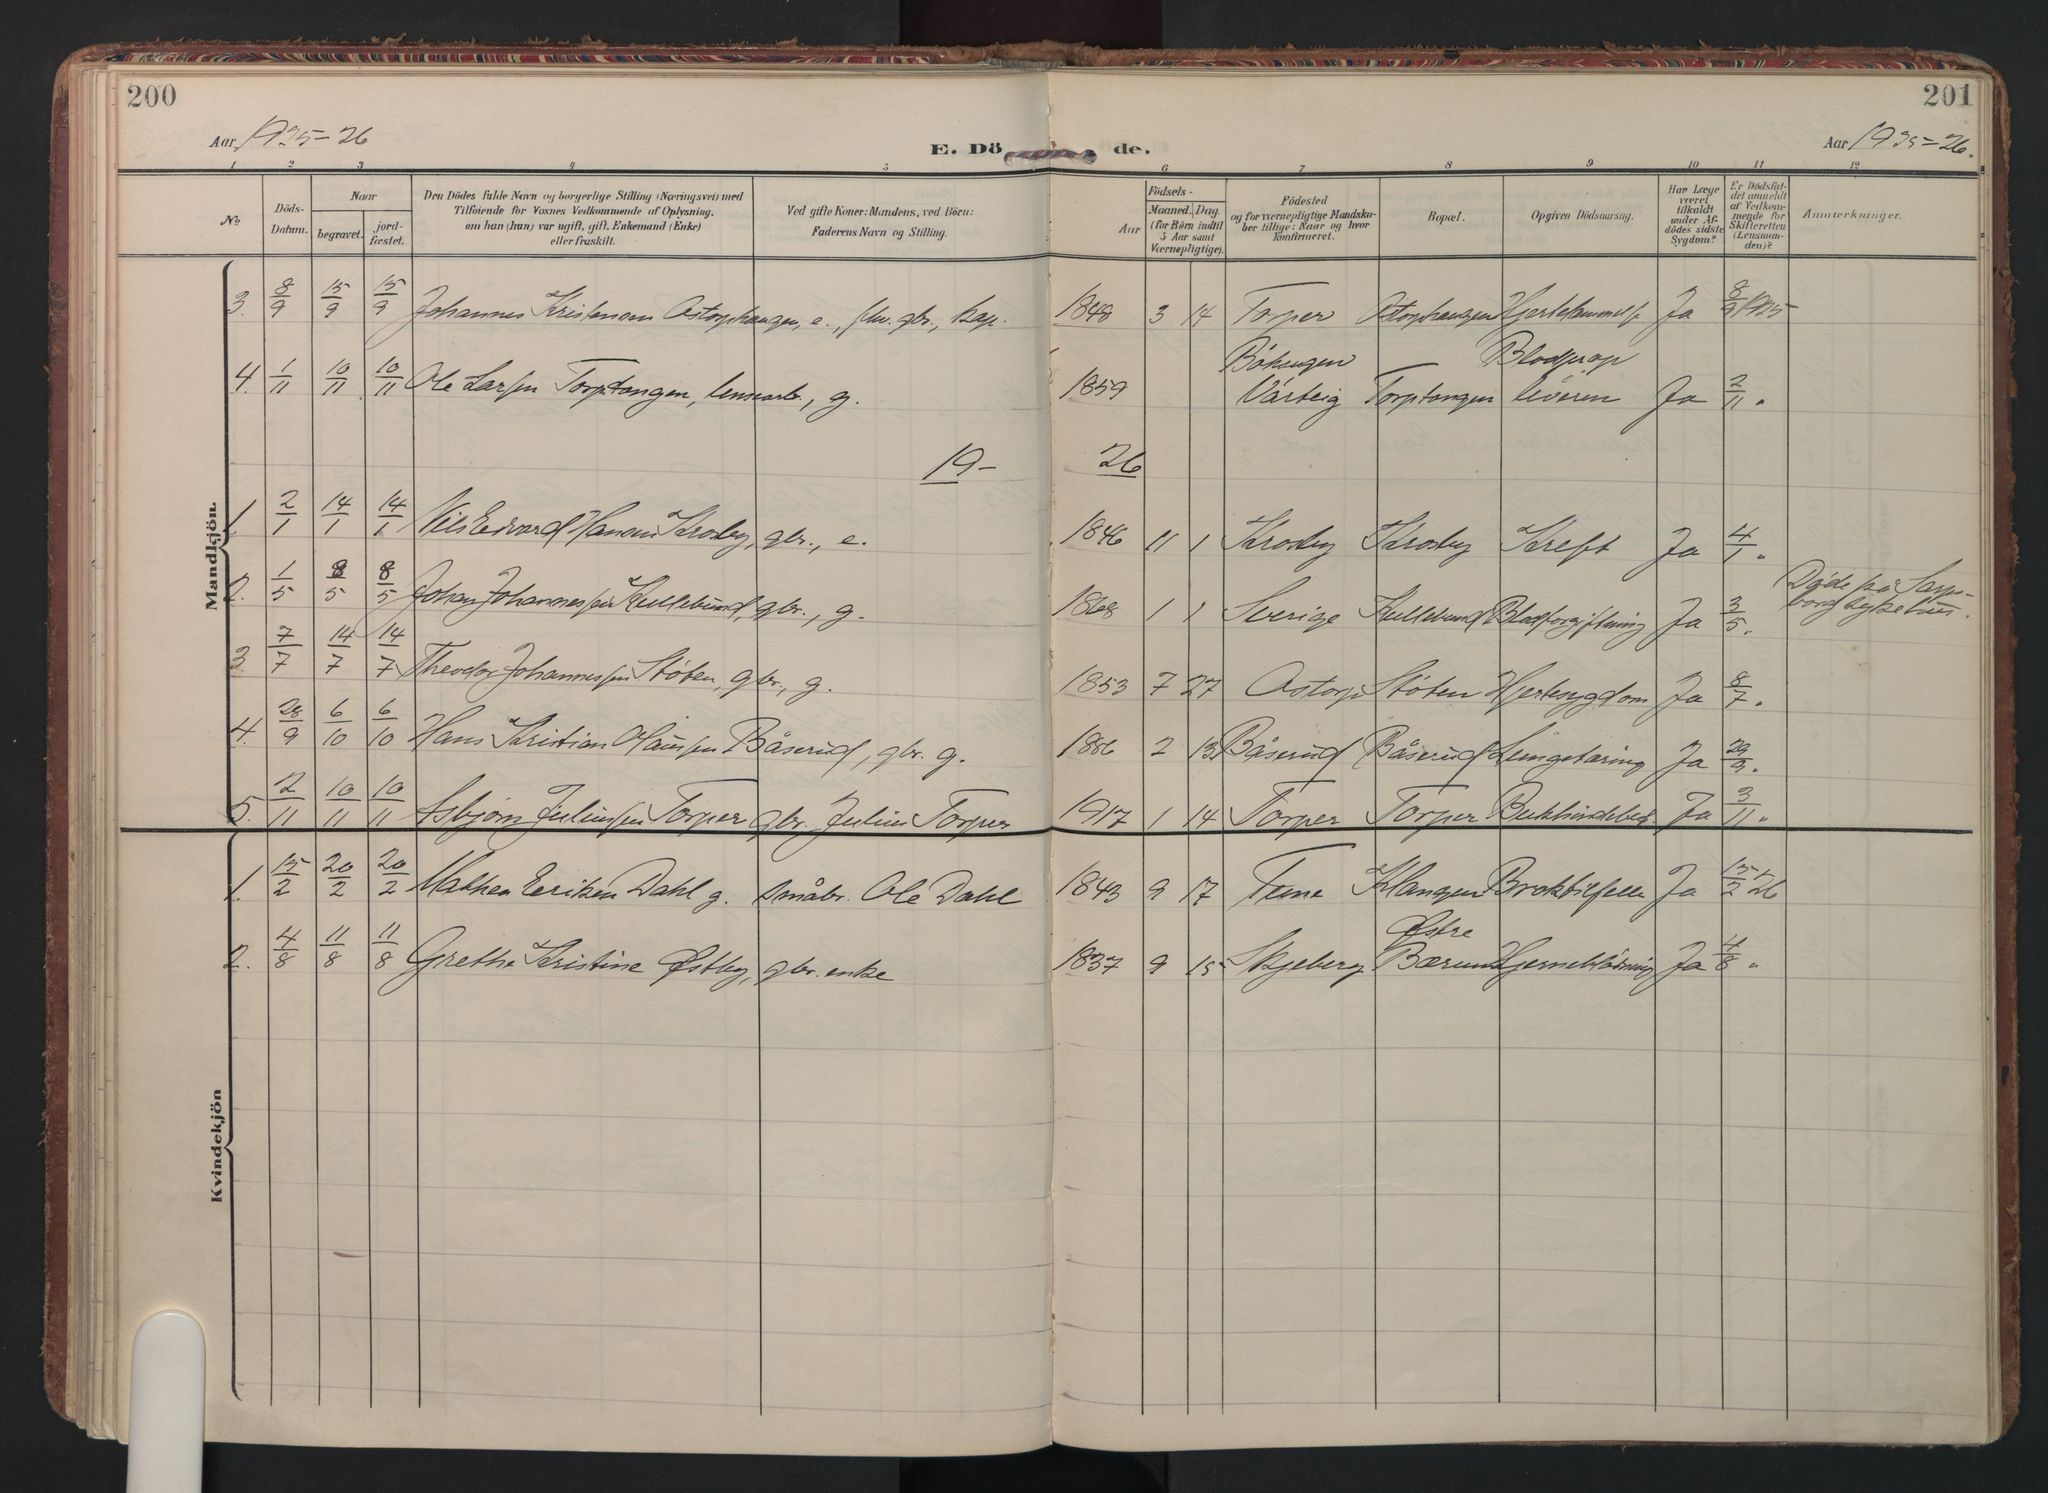 200
201
Aar 1925-26
E. Dö
de.
Aar 1925-26.
1 2 3 4 5 6 7 8 9 10 11 12
No
Döds-Datum.
Naar
begravet.
jord-fæstet.
Den Dödes fulde Navn og borgerlige Stilling (Næringsvei) med
Tilföiende for Voxnes Vedkommende af Oplysning,
om han (hun) var ugift, gift, Enkemand (Enke)
eller fraskilt.
Ved gifte Koner: Mandens, ved Börn:
Faderens Navn og Stilling.
Födsels-
Aar
Maaned. Dag.
(for Börn indtil
5 Aar samt
Værnepligtige).
Födested
og for værnepligtige Mandska-
ber tillige: Naar og hvor
konfirmeret.
Bopæl.
Opgiven Dödsaarsag.
Har Læge
været
tilkaldt
under Af-
dödes sidste
Sygdom?
Er Dödsfal-
det anmeldt
af Vedkom-
mende for
Skifteretten
(Lensman-
den)?
Anmærkninger.
Mandkjön.
3. 8/9 15/9 15/9 Johannes Kristensen Astorphaugen, e., fhv. gbr., kap. 1848 3 14 Torper Astorphaugen Ja 8/9 1925
Böhaugen Blodprop
4. 1/11 10/11 10/11 Ole Larsen Torptangen, lensearb., g. 1859 Varteig Torptangen Ja 2/11 "
19- 26
1. 2/1 14/1 14/1 Nils Edvard Hansen Krosby, gbr., e. 1846 11 1 Krosby Krosby Kreft Ja 4/1 "
2. 1/5 8/5 8/5 Johan Johannessen Kullebund, gbr., g. 1868 1 1 Sverige Kullebund Blodforgiftning Ja 3/5 " Døde på Sarp-
borg sykehus.
3. 7/7 14/7 14/7 Theodor Johannessen Støten, gbr., g. 1853 7 27 Astorp Støten Hjertesygdom Ja 8/7 "
4. 28/9 6/10 6/10 Hans Kristian Olaussen Båserud, gbr. g. 1886 2 13 Båserud Båserud Lungetæring Ja 29/9 "
5. 2/11 10/11 10/11 Asbjørn Juliussen Torper gbr. Julius Torper 1917 1 14 Torper Torper Bukhindebet. Ja 3/11 "
Kvindekjön
1. 15/2 20/2 20/2 Mathea Eriksen Dahl g. småbr. Ole Dahl 1843 9 17 Tune Klangen Broktilfelle Ja 15/2 26
Østre
2. 4/8 11/8 11/8 Grethe Kristine Østby, gbr. enke 1837 9 15 Skjeberg Bærum Hjerneblødning Ja 4/8 "